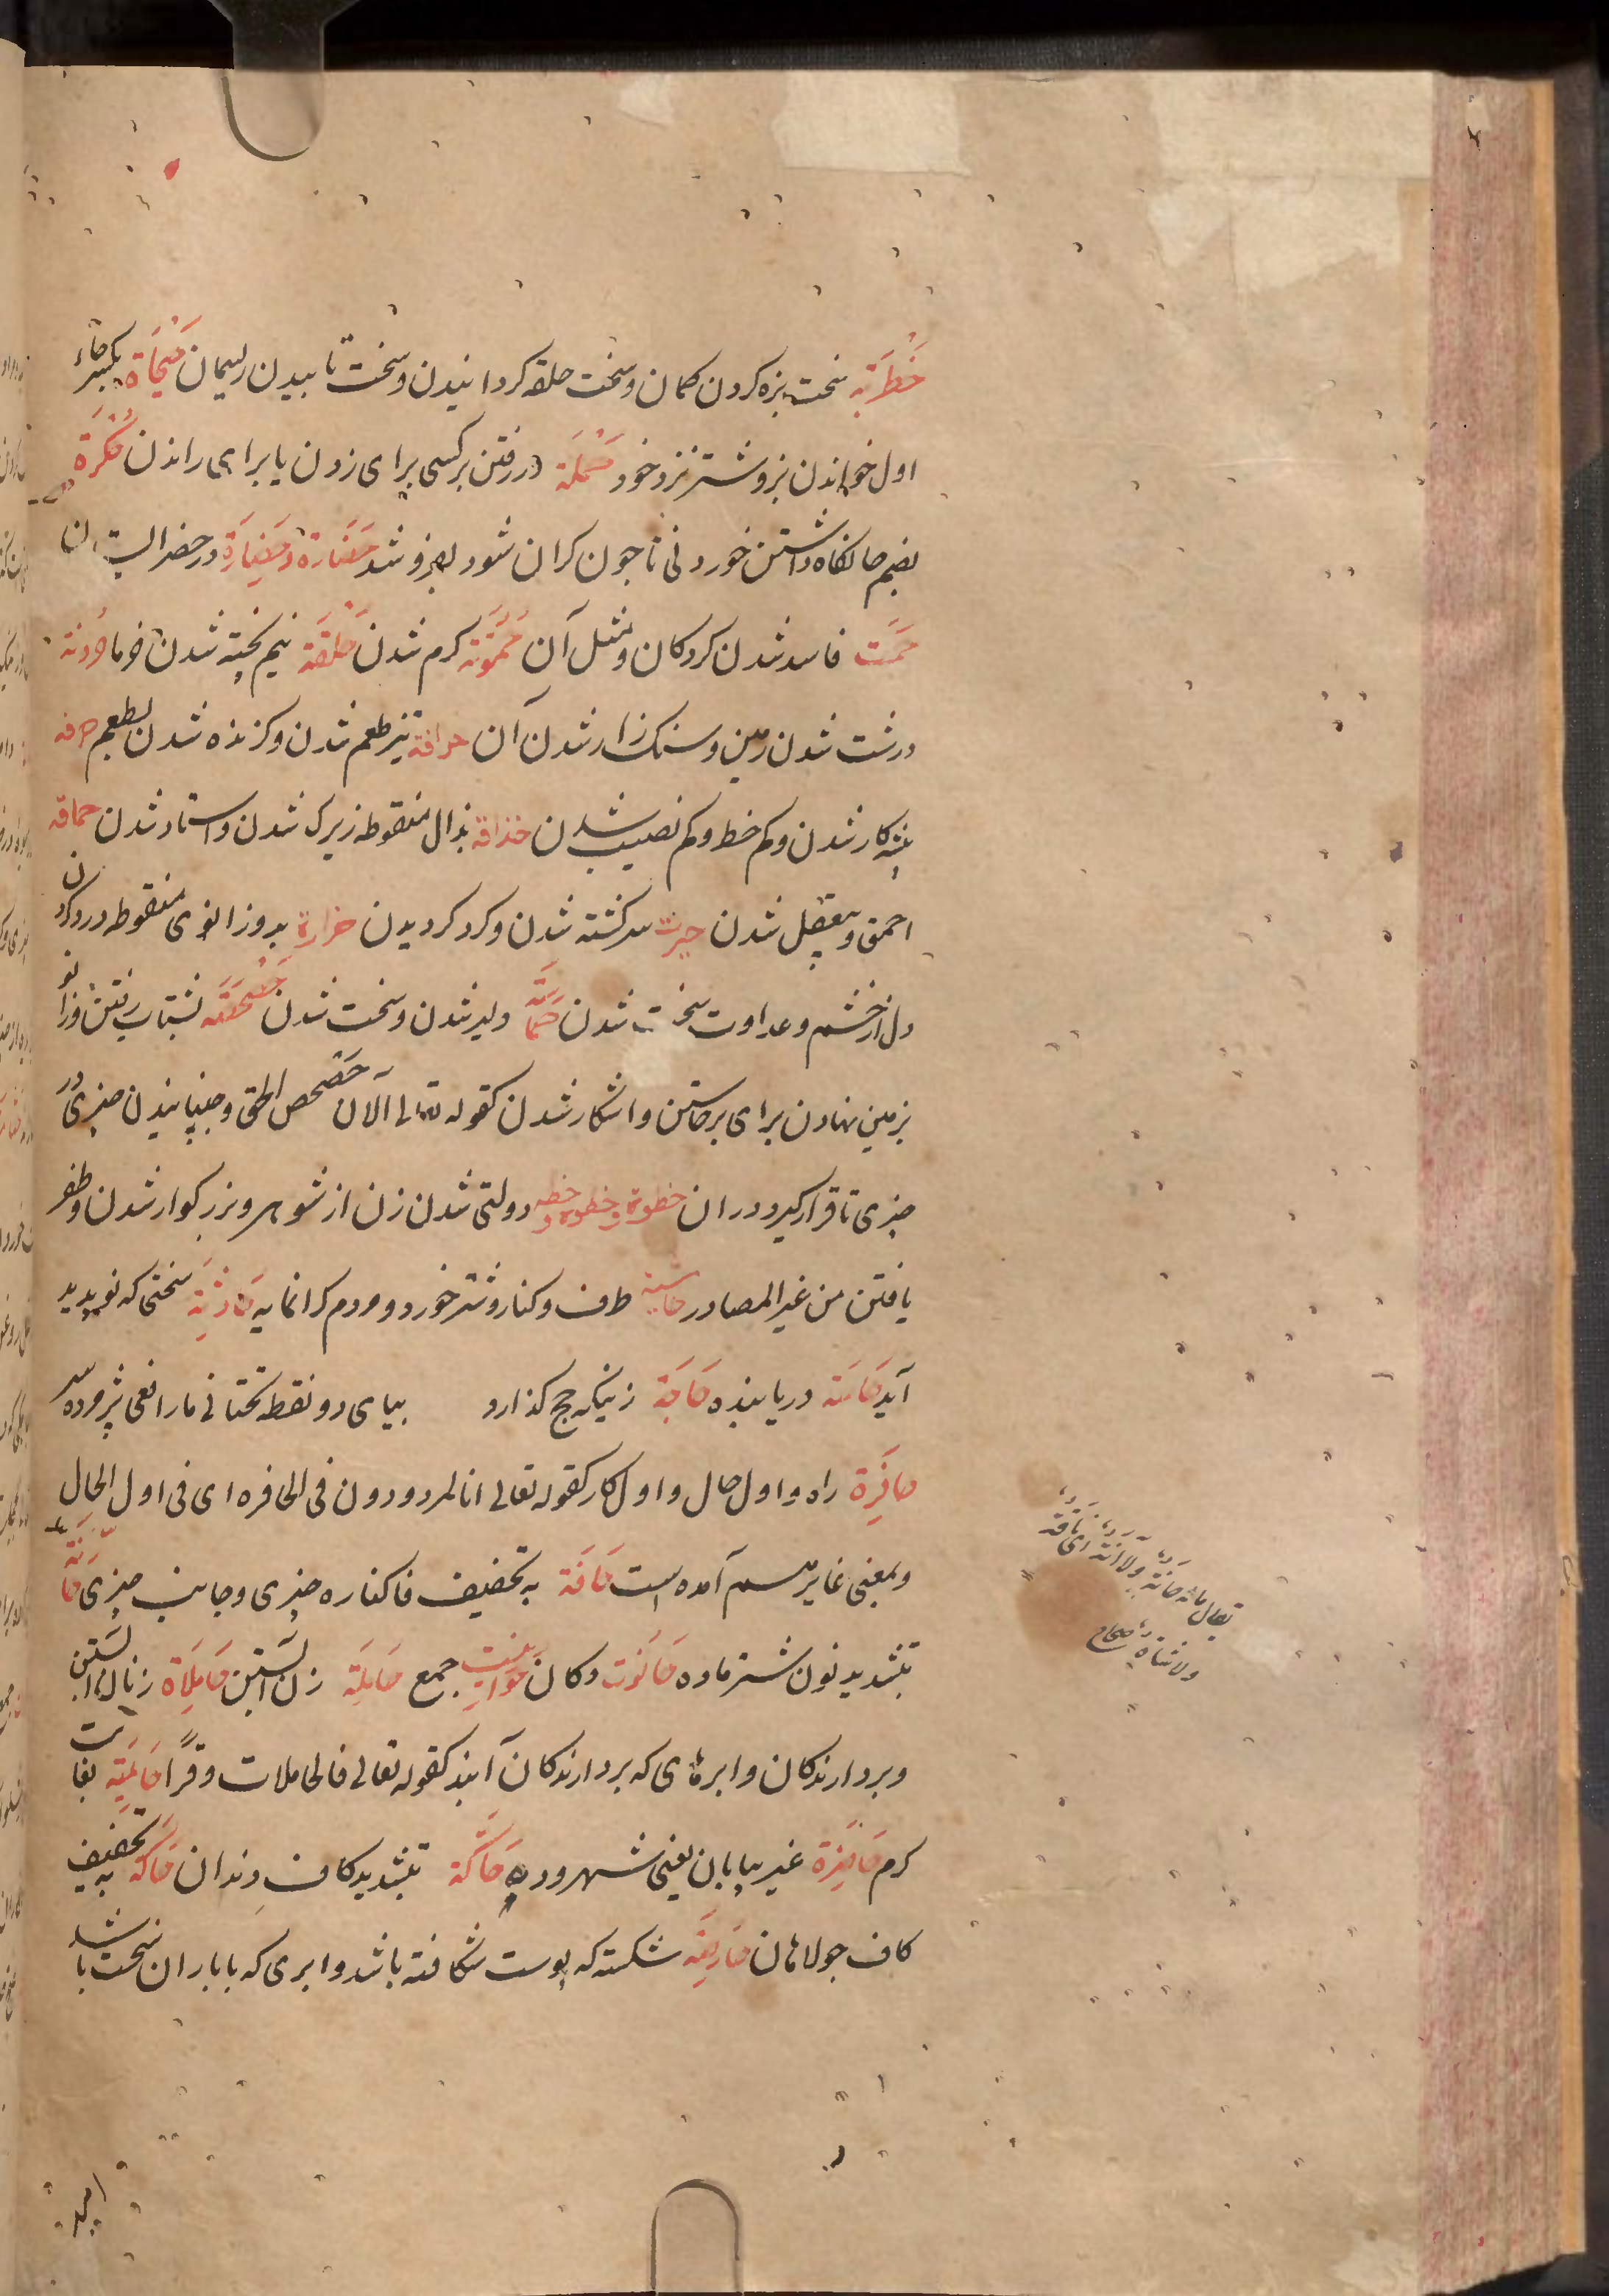 حَظْرَبَه سخت بزه کردن کمان و سخت حلقه کردانیدن و سخت تابیدن ریسمان حِیحَاة بکسر حاء
اول خواندن بز و شتر نزد خود حَمْلَة در رفتن بر کسی برای زدن یا برای راندن حُکْرَة
بضم حا نکاه داشتن خوردنی تا جون کران شود بفروشد حَضَارَة وحِضَارَة در حضر ایستادن
حَمَت فاسد شدن کردکان و مثل آن حُمُوتَه کرم شدن حَلْقَنَة نیم پخته شدن خرما حُزُونَة
درشت شدن زمین و سنک زار شدن آن حرافة تیز طعم شدن و کزنده شدن طعم حرفه
پیشه کار شدن و کم حظ و کم نصیب شدن حذاقة بذال منقوطه زیرک شدن و استاد شدن حماقة
احمق و بیعقل شدن حیرت سرکشته شدن و کرد کردیدن حزازة بدو زای منقوطه درد کردن
دل از خشم و عداوت سخت شدن دلیر شدن و سخت شدن حَصْحَصَه بشتاب رفتن و زانو
بزمین نهادن برای برخاستن و اشکار شدن کقوله تعالی الآن حَصْحَص الحق و جنبانیدن چیزی در
چیزی تا قرار کیرد در ان حظوة وحظوة وحظه دولتی شدن زن از شوهر و بزرکوار شدن و ظفر
یافتن من غیر المصادر حاشیة طرف و کنار و شتر خورد و مردم کرانمایه حَادِثَة سختی که نو پدید
آید حَاسَّة دریابنده حَاجَّة زنیکه حج کذارد بیای دو نقطه تحتانی مار افعی
حَافِرَة راه و اول حال و اول کار کقوله تعالی انا لمردودون فی الحافره ای فی اول الحال
و بمعنی آمده است حَافَة به تخفیف فا کناره چیزی و جانب چیزی حَانَّة
بتشدید نون شتر ماده حَانُوت دکان حَوَانِیت جمع حَامِلَة زن آبستن حَامِلَاة زنان آبستن
و بردارندکان و ابرهای که بردارندکان آبند کقوله تعالی فالحاملات وقرًا حَامِیَة بغایت
کرم حَاضِرَة غیر بیابان یعنی شهر و ده حَاکَّة بتشدید کاف دندان حَاکَة به تخفیف
کاف جولاهان حَارِصَة شکسته که پوست شکافته باشد و ابری که با باران سخت باشد
یقال ماله حَانَّة ولا آنَّة ای ناقة
ولا شاة صحاح